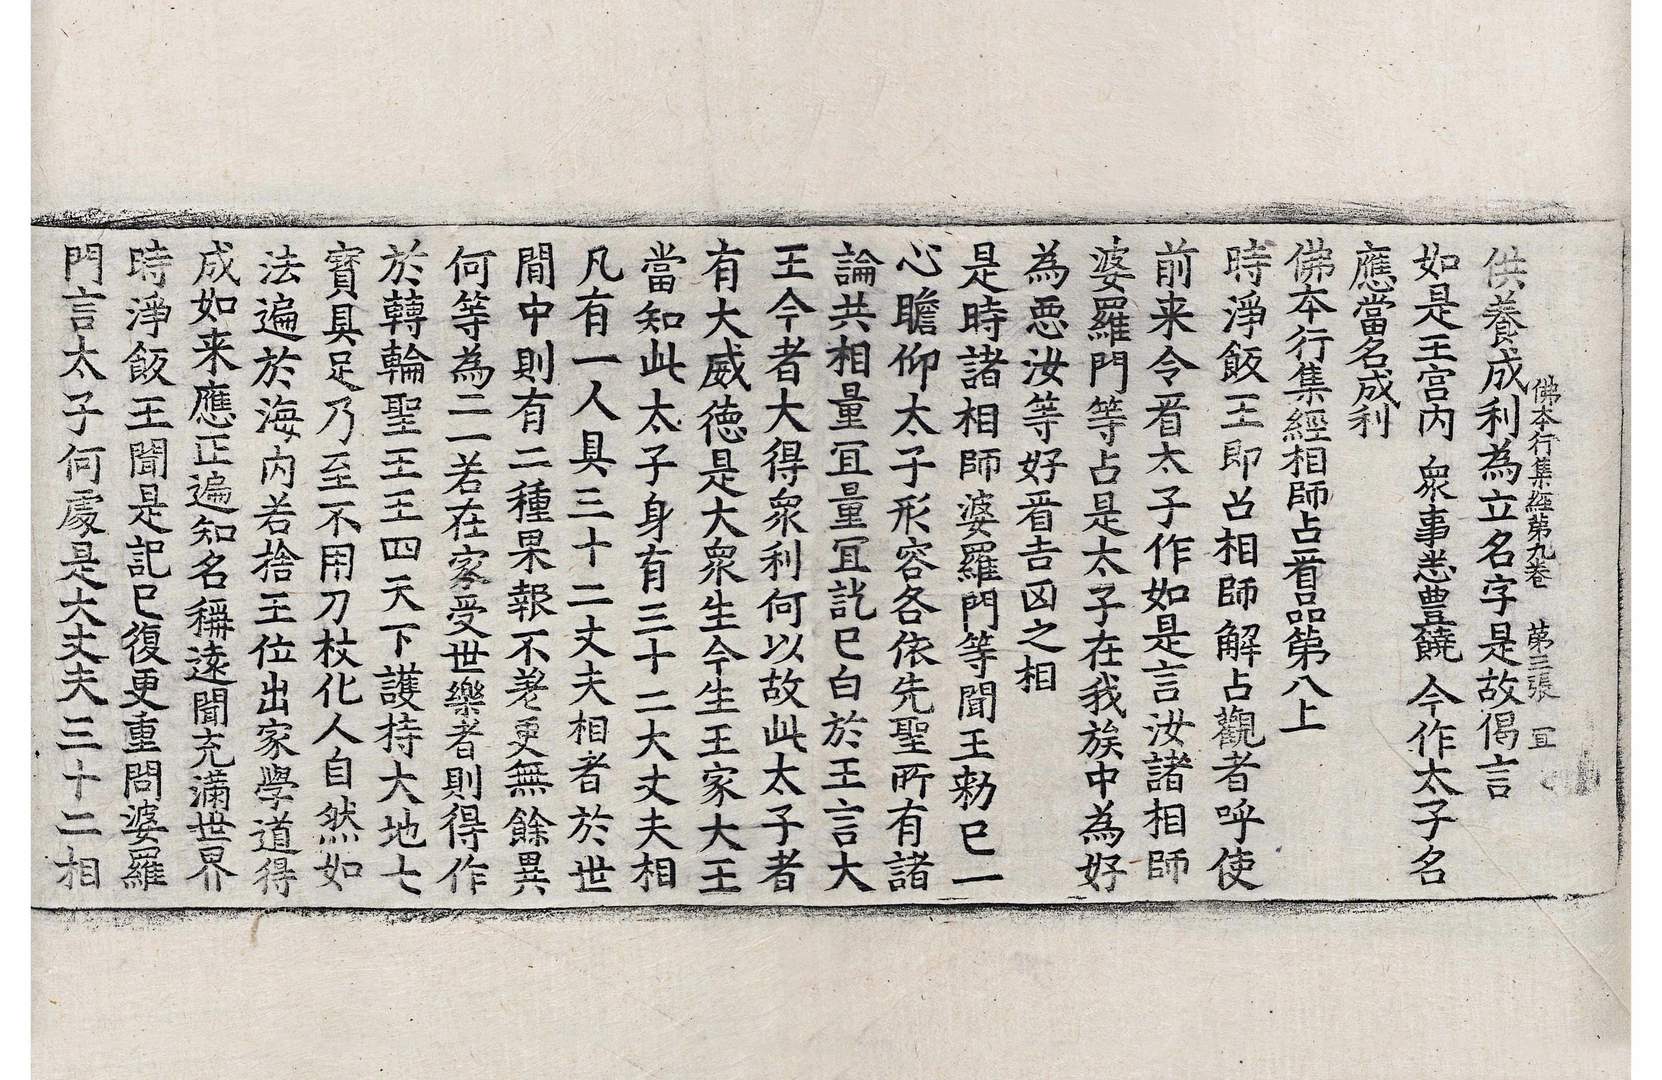 佛本行集經第九卷 第三張 冝
供養成利為立名字是故偈言
如是王宫内 衆事悉豊饒 今作太子名
應當名成利
佛本行集經相師占㸔品第八上
時淨飯王即召相師解占觀者呼使
前来令㸔太子作如是言汝諸相師
婆羅門等占是太子在我族中為好
為惡汝等好㸔吉凶之相
是時諸相師婆羅門等聞王勑已一
心瞻仰太子形容各依先聖所有諸
論共相量冝量冝訖已白於王言大
王今者大得衆利何以故此太子者
有大威德是大衆生今生王家大王
當知此太子身有三十二大丈夫相
凡有一人具三十二丈夫相者於世
間中則有二種果報不差更無餘異
何等為二一若在家受世樂者則得作
於轉輪聖王王四天下護持大地七
寳具足乃至不用刀杖化人自然如
法遍於海内若捨王位出家學道得
成如来應正遍知名稱遠聞充滿世界
時淨飯王聞是記已復更重問婆羅
門言太子何處是大丈夫三十二相